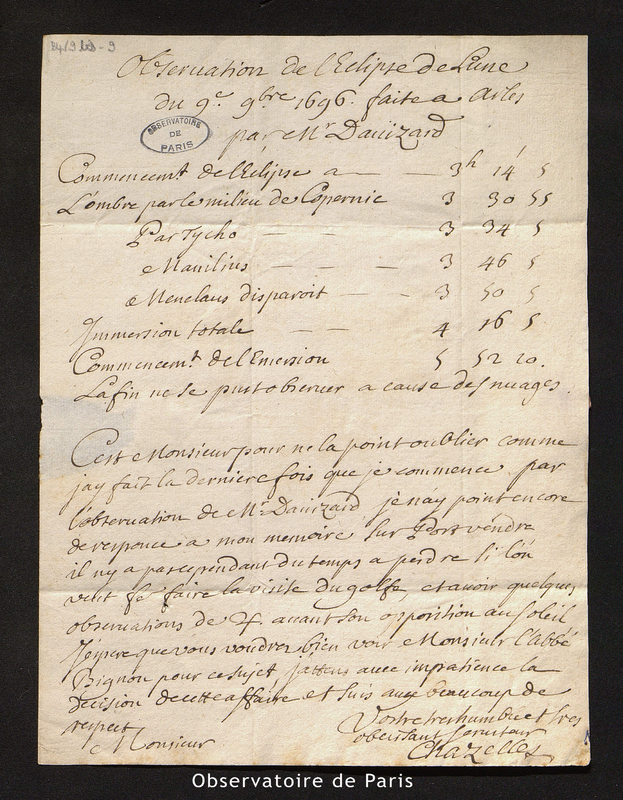 B4/9 bis - 9
Observation de l'Eclipse de Lune
du 9e 9bre 1696. faite a Arles
par Mr Dauizard
OBSERVATOIRE
DE
PARIS
Commencemt de l'Eclipse a — — 3h 14' 5
L'ombre par le milieu de Copernic 3 30 55
Par Tycho — — 3 34 5
Manilius — — — 3 46 5
Menelaus disparoit — — 3 50 5
Immersion totale — — 4 16 5
Commencemt de l'Emersion 5 52 20.
La fin ne se put obseruer a cause des nuages.
Cest Monsieur pour ne la point oublier comme
jay fait la derniere fois que je commence par
l'obseruation de Mr Dauizard, je nay point encore
de responce a mon memoire sur Port vendre
il ny a pas cependant du temps a perdre si l'on
veut faire la visite du golfe, et auoir quelques
obseruations de ♃ auant son opposition au soleil
J'espere que vous voudrez bien voir Monsieur l'abbé
Bignon pour ce sujet, j'attens auec impatience la
decision de cette affaire et suis auec beaucoup de
respect
Monsieur
Vostre tres humble et tres
obeissant seruiteur
Chazelles
Observatoire de Paris